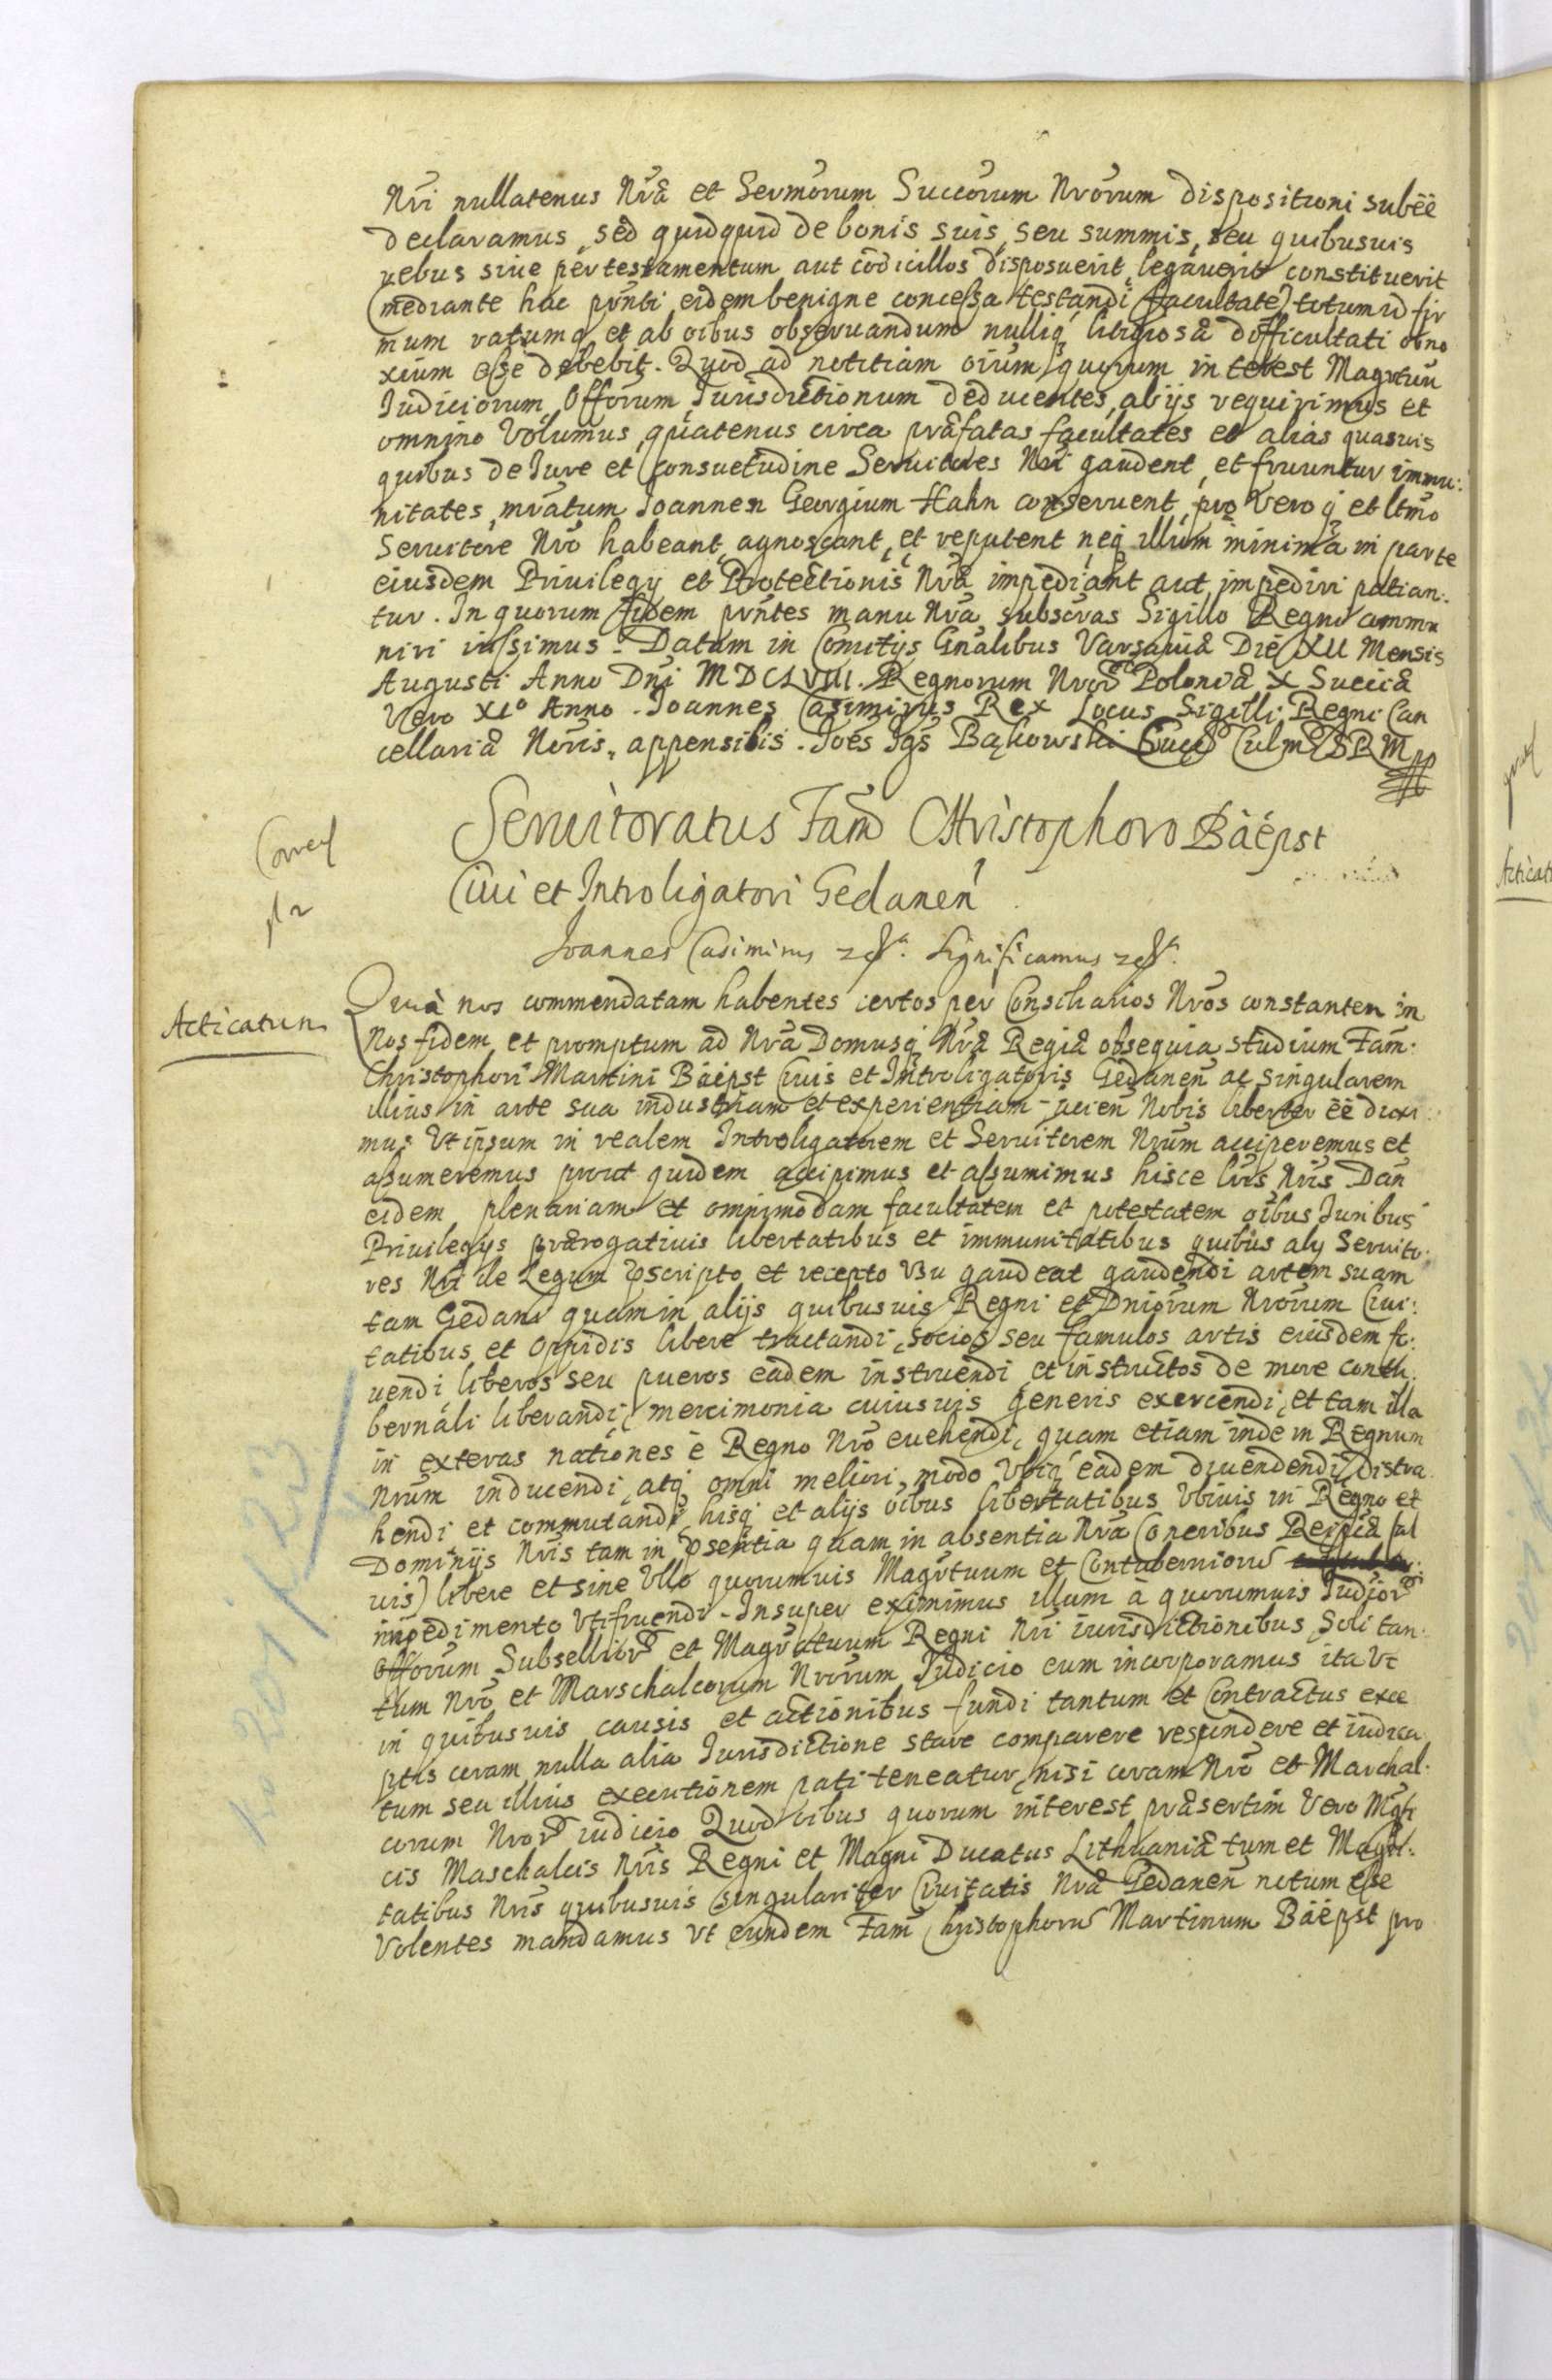 Nri nullatenus Nrae et Sermorum Succorum Nrorum dispositioni subee
declaramus, sed quidquid de bonis suis, seu summis, seu quibusuis
rebus siue per testamentum aut codicillos disposuerit legauerit constituerit
(mediante hac pnti eidem benigne concessa testandi facultate) totum id fir
mum ratumq et ab oibus obseruandum nulliq litigiosae difficultati obno
xium esse debebit. Quod ad notitiam oium quorum interest Magrtuu
Iudiciorum Offorum Iurisdictionum deducentes, ab ijs requirimus et
omnino Volumus, quatenus circa praefatas facultates et alias quasuis
quibus de Iure et Consuetudine Seruitores Nri gaudent, et fruuntur immu:
nitates, mratum Ioannem Georgium Hahn conseruent, pro Vero q et ltmo
Seruitore Nro habeant, agnoscant, et reputent neq illum minima in parte
eiusdem Priuilegy et Protectionis Nrae impediant aut impediri patian:
tur. In quorum fidem pntes manu Nra subscras Sigillo Regni commu
niri iussimus. Datum in Comitijs Gnalibus Varsauiae Die XII Mensis
Augusti Anno Dni MDCLVIII. Regnorum Nror Poloniae X Sueciae
Vero XIo Anno. Joannes Casimirus Rex Locus Sigilli Regni Can
cellariae Noris, appensibilis. Joes Igs Bąkowski Succ Culm SRM
Seruitoratus Fam Christophoro Bäëpst
Ciui et Introligatori Gedanen
Correct
Joannes Casimirus etc. Significamus etc.
Acticatum
Quia nos commendatam habentes certos per Consiliarios Nros constantem in
Nos fidem et promptum ad Nra Domusq Nrae Regiae obsequia studium Fam:
Christophori Martini Bäëpst Ciuis et Introligatoris Gedanen ac singularem
illius in arte sua industriam et experientiam faciend Nobis libenter ee duxi:
mus Vt ipsum in realem Introligatorem et Seruitorem Nrum acciperemus et
assumeremus prout quidem accipimus et assumimus hisce lris Nris Dan
eidem plenariam et omnimodam facultatem et potestatem oibus Iuribus
Priuilegijs praerogatiuis libertatibus et immunitatibus quibus aly Seruito:
res Nri de Legum pscripto et recepto Vsu gaudeat gaudendi artem suam
tam Gedani quam in alijs quibusuis Regni et Dniorum Nrorum Ciui:
tatibus et Oppidis libere tractandi, socios seu famulos artis eiusdem fo:
uendi liberos seu pueros eadem instruendi, et instructos de more contu:
bernali liberandi, mercimonia cuiusuis generis exercendi, et tam illa
in exteras nationes è Regno Nro euehendi, quam etiam inde in Regnum
Nrum inducendi, atq omni meliori modo Vbiq eadem diuendendi, distra
hendi et commutandi hisq et alijs oibus libertatibus Vbiuis in Regno et
Dominijs Nris tam in psentia quam in absentia Nra (oneribus Reipcae sal
uis) libere et sine Vllo quorumuis Magrtuum et Contuberniorum
impedimento Vtifruendi. Insuper eximimus illum à quorumuis Iudior
Offorum Subsellior et Magratuum Regni Nri iurisdictionibus, Soli tan:
tum Nro et Marschalcorum Nrorum Iudicio eum incorporamus ita Vt
in quibusuis causis et actionibus fundi tantum et Contractus exce
ptis coram nulla alia Iurisdictione stare comparere respondere et iudica
tum seu illius executionem pati teneatur, nisi coram Nro et Marchal:
corum Nror iudicio Quod oibus quorum interest praesertim Vero Mgfi
cis Maschalcis Nris Regni et Magni Ducatus Lithuaniae tum et Magri:
tatibus Nris quibusuis singulariter Ciuitatis Nrae Gedanen notum esse
Volentes mandamus Vt eundem Fam Christophorum Martinum Bäëpst pro